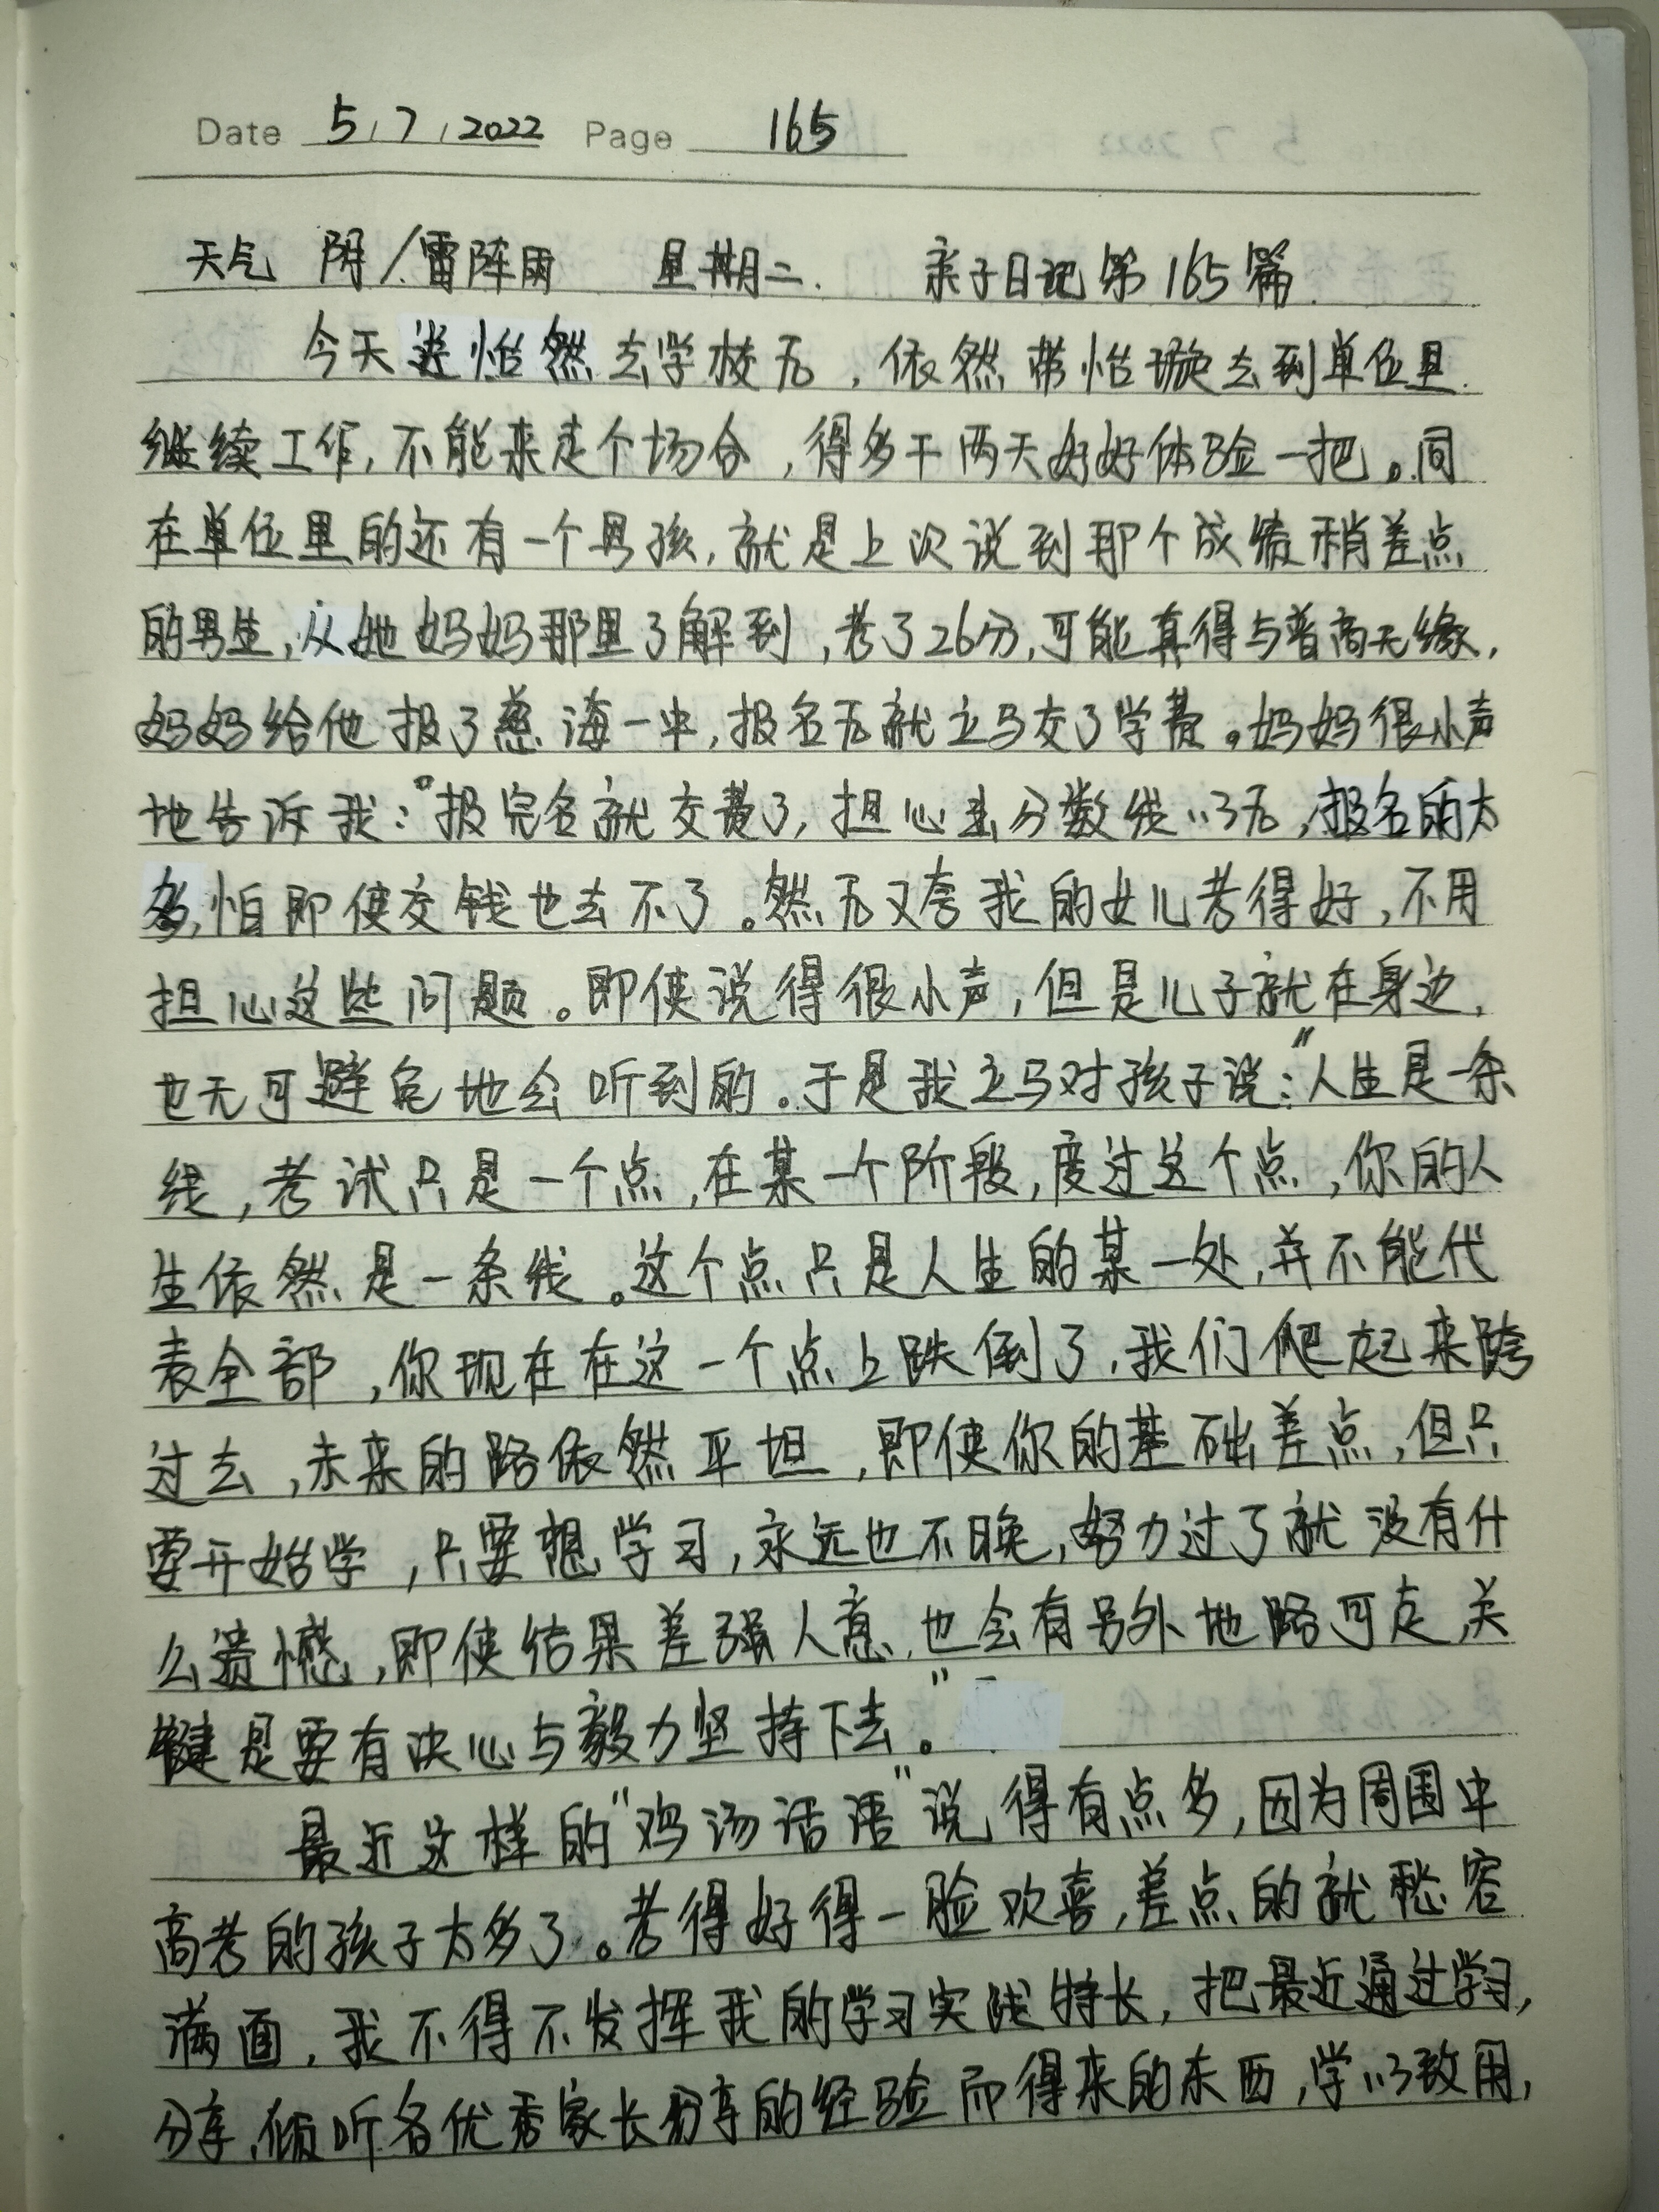 Date 5 / 7 / 2022 Page 165
天气 阴/雷阵雨 星期二. 亲子日记第165篇.
今天送怡然去学校后,依然带怡璇去到单位里
继续工作,不能来走个场合,得多干两天好好体验一把。同
在单位里的还有一个男孩,就是上次说到那个成绩稍差点
的男生,从她妈妈那里了解到,考了26分,可能真得与普高无缘,
妈妈给他报了慈海一中,报名后就立马交了学费。妈妈很小声
地告诉我:“报完名就交费了,担心出分数线以后,报名的太
多,怕即使交钱也去不了。然后又夸我的女儿考得好,不用
担心这些问题。即使说得很小声,但是儿子就在身边,
也无可避免地会听到的。于是我立马对孩子说:“人生是一条
线,考试只是一个点,在某一个阶段,度过这个点,你的人
生依然是一条线。这个点只是人生的某一处,并不能代
表全部,你现在在这一个点上跌倒了,我们爬起来跨
过去,未来的路依然平坦,即使你的基础差点,但只
要开始学,只要想学习,永远也不晚,努力过了就没有什
么遗憾,即使结果差强人意,也会有另外地路可走,关
键是要有决心与毅力坚持下去。”
最近这样的“鸡汤话语”说得有点多,因为周围中
高考的孩子太多了。考得好得一脸欢喜,差点的就愁容
满面,我不得不发挥我的学习实践特长,把最近通过学习,
分享,倾听各优秀家长分享的经验而得来的东西,学以致用,